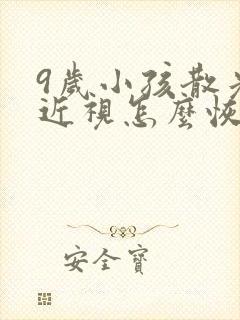 9歲小孩散
近視怎麼恢
安全寶